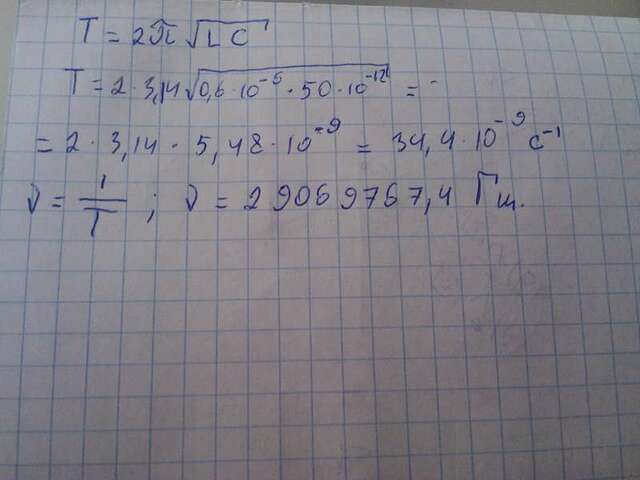 T = 2π √LC
T = 2 · 3,14 √0,6·10⁻⁶ · 50·10⁻¹² =
= 2 · 3,14 · 5,48 · 10⁻⁹ = 34,4·10⁻⁹ с⁻¹
ν = 1/T ; ν = 29069767,4 Гц.